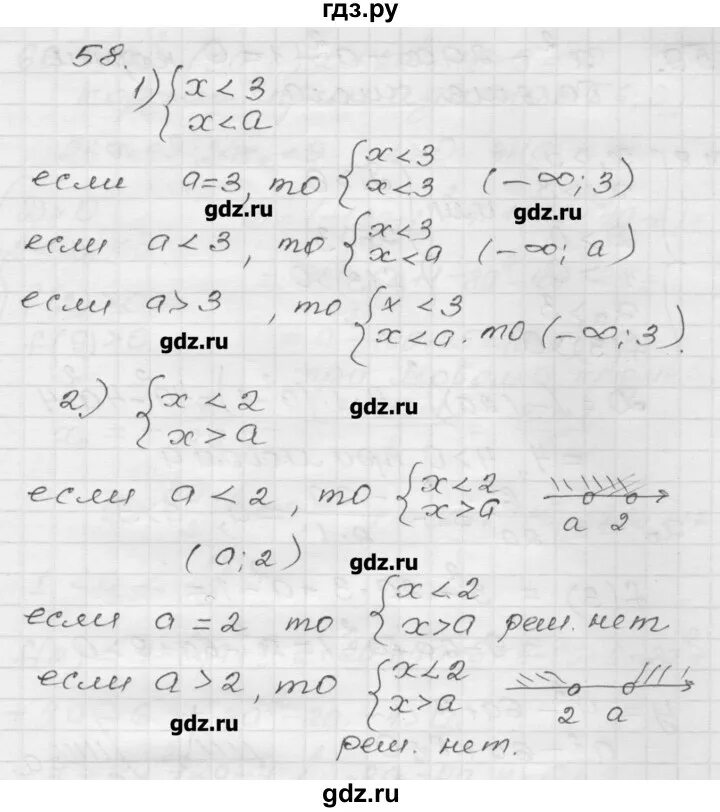 гдз.ру
58.
1) { x < 3
x < a
если a = 3, то { x < 3
x < 3 (−∞; 3)
gdz.ru
gdz.ru
если a < 3, то { x < 3
x < a (−∞; a)
если a > 3, то { x < 3
x < a. то (−∞; 3).
gdz.ru
2.) { x < 2
x > a
gdz.ru
если a < 2, то { x < 2
x > a
a 2
(a; 2)
gdz.ru
если a = 2 то { x < 2
x > a реш. нет
если a > 2, то { x < 2
x > a
2 a
gdz.ru
реш. нет.
gdz.ru